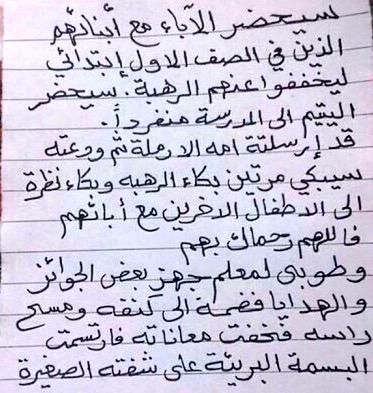 سيحضر الآباء مع أبنائهم
الذين في الصف الاول إبتدائي
ليخففوا عنهم الرهبة . سيحضر
اليتيم الى المدرسة منفرداً .
قد إرسلتة امه الارملة ثم ودعته
سيبكي مرتين بكاء الرهبه وبكاء نظرة
الى الاطفال الاخرين مع أبائهم
فاللهم رحماك بهم
وطوبى لمعلم جهز بعض الجوائز
والهدايا فضمة الى كنفه ومسح
راسه فخفت معاناته فارتسمت
البسمة البريئة على شفته الصغيرة